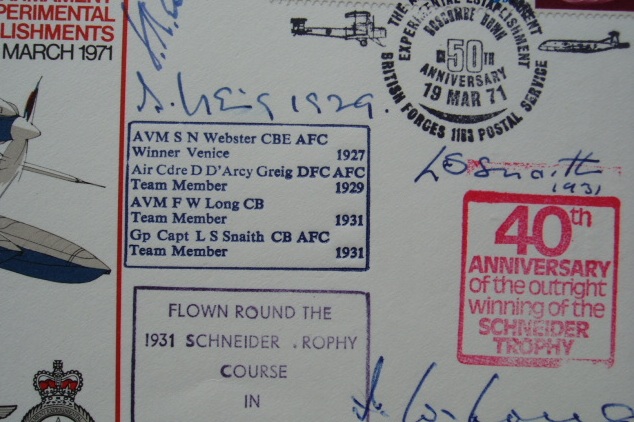 ARMAMENT
XPERIMENTAL
BLISHMENTS
MARCH 1971
EXPERIMENTAL ESTABLISHMENT
BOSCOMBE DOWN
50TH
ANNIVERSARY
19 MAR 71
BRITISH FORCES 1183 POSTAL SERVICE
D. Greig 1929.
AVM S N Webster CBE AFC
Winner Venice 1927
Air Cdre D D'Arcy Greig DFC AFC
Team Member 1929
AVM F W Long CB
Team Member 1931
Gp Capt L S Snaith CB AFC
Team Member 1931
LS Snaith
1931
40th
ANNIVERSARY
of the outright
winning of the
SCHNEIDER
TROPHY
FLOWN ROUND THE
1931 SCHNEIDER .ROPHY
COURSE
IN